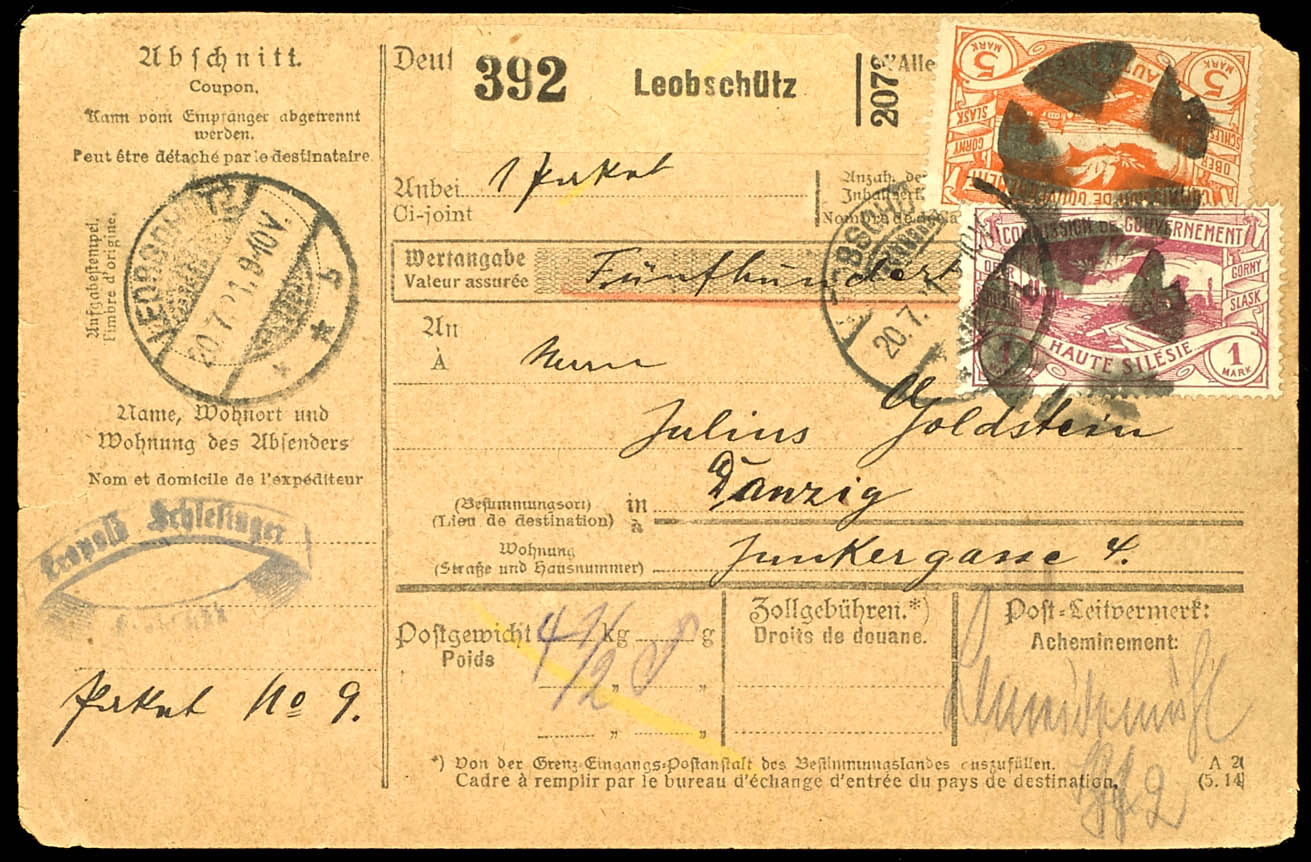 Abschnitt.
Coupon.
*Kann vom Empfänger abgetrennt
werden.
Peut être détaché par le destinataire.
Aufgabestempel.
Timbre d'origine.
LEOBSCHÜTZ
20.7.21. 9-10V.
Name, Wohnort und
Wohnung des Absenders
Nom et domicile de l'expéditeur
Leopold Schlesinger
Paket No 9.
Deut
392 Leobschütz
207
Alle
Anbei 1 Paket
Ci-joint
Anzahl de
Inhaltserk
Nombre de
Wertangabe
Valeur assurée
Fünfhundert
20.7.
An
À
Herrn
Julius Goldstein
(Bestimmungsort) in
(Lieu de destination) à
Danzig
Wohnung
(Straße und Hausnummer)
Junkergasse 4.
Postgewicht 4 1/2 kg g
Poids
Zollgebühren.*)
Droits de douane.
Post-Leitvermerk:
Acheminement:
*) Von der Grenz-Eingangs-Postanstalt des Bestimmungslandes auszufüllen.
Cadre à remplir par le bureau d'échange d'entrée du pays de destination.
A 2
(5. 14)
5 MARK
5 MARK
OBER
SCHLES
GORNY
SLASK
COMMISSION DE GOUVERNEMENT
OBER
GORNY
SLASK
HAUTE SILÉSIE
1 MARK